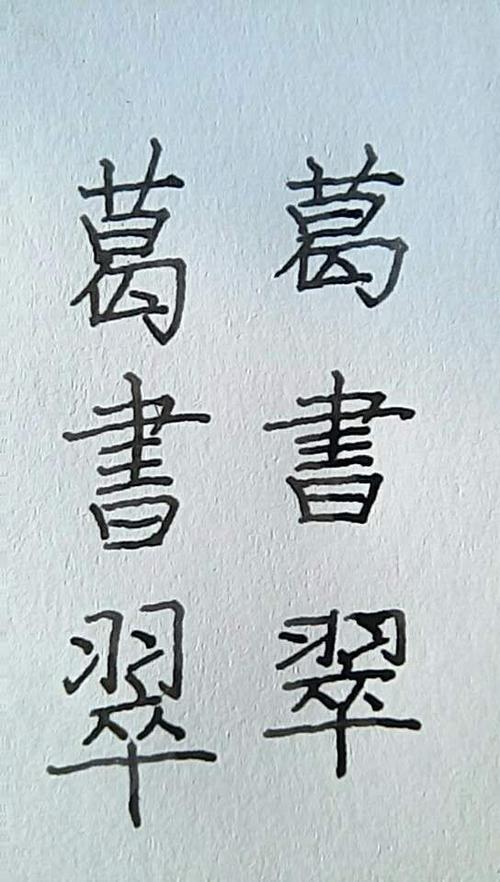 葛書翠
葛書翠